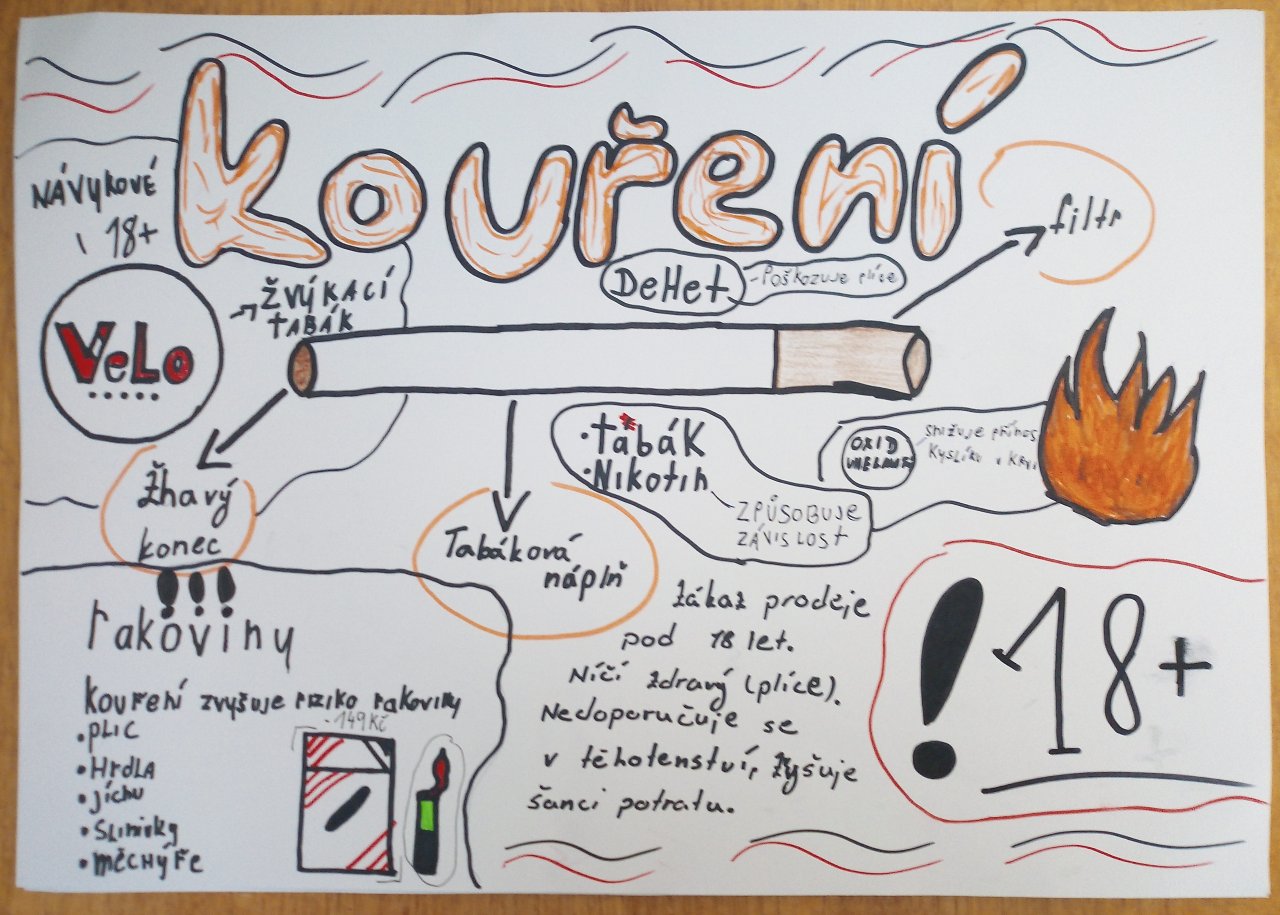 Kouření
NÁVYKOVÉ
i 18+
VeLo
ŽVÝKACÍ
tABÁK
DeHet
- POŠKOZUJE plíce
filtr
Žhavý
konec
Tabáková
náplň
• tabÁK
• Nikotin
ZPŮSOBUJE
ZÁVISLOST
OXID
UHELNATÝ
SNIŽUJE PŘÍNOS
KYSLÍKU V KRVI
!!!
rakoviny
Kouření zvyšuje riziko rakoviny
• PLIC
• HrdLA
• jícnu
• SLINIVKY
• MĚCHÝŘE
149Kč
Zákaz prodeje
pod 18 let.
Ničí zdravý (plíce).
Nedoporučuje se
v těhotenství, zyšuje
šanci potratu.
! 18+